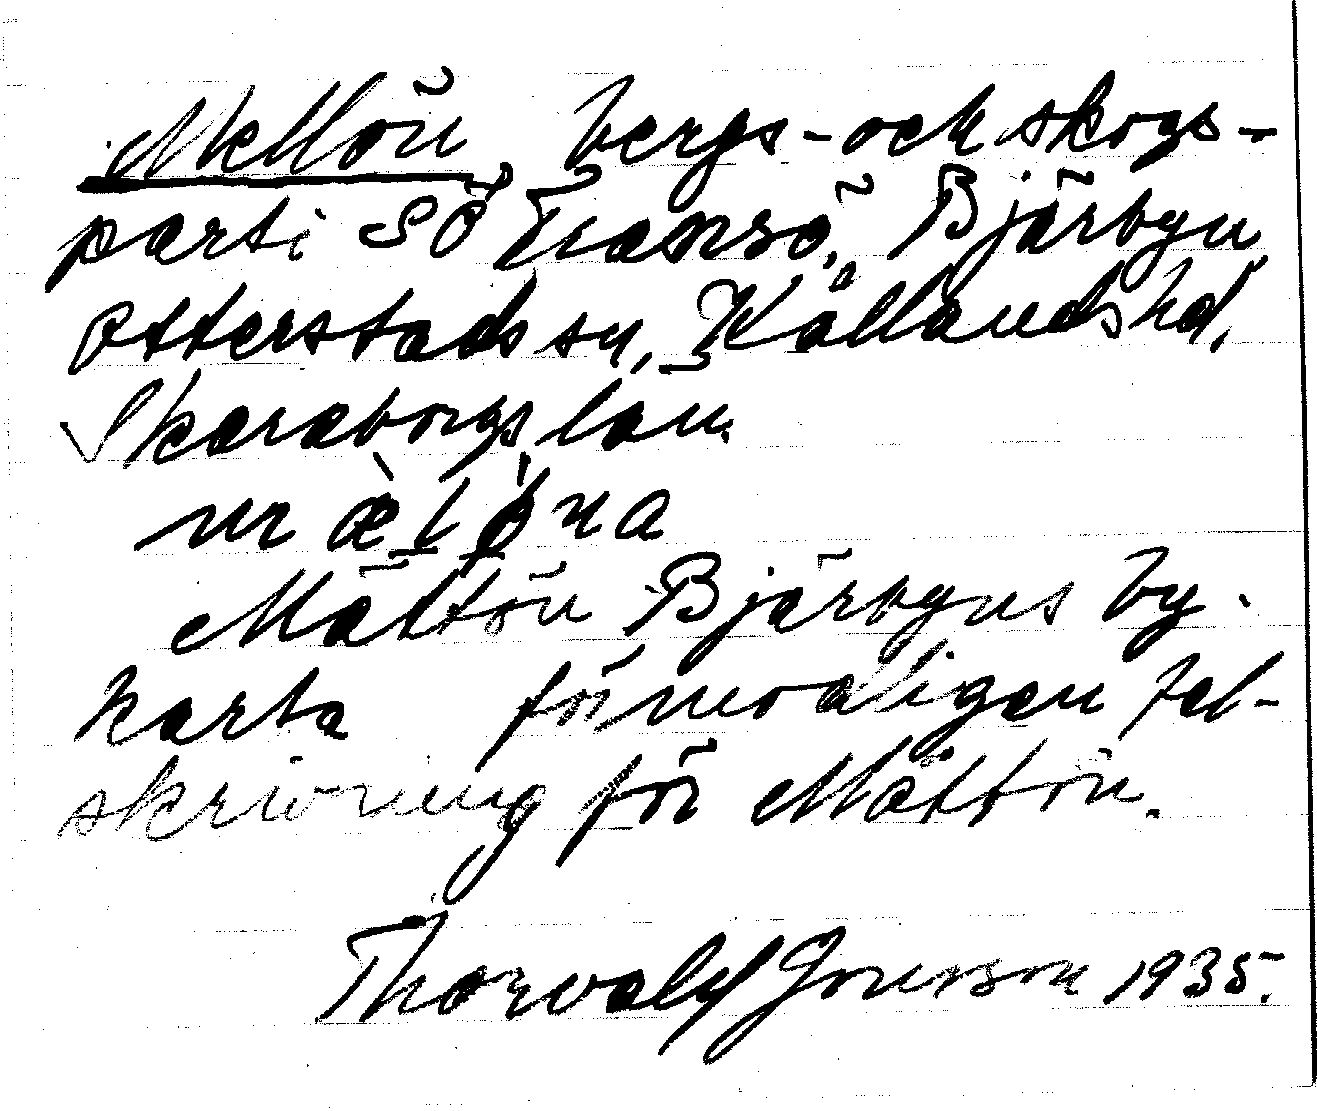 Mellön, bergs- och skogs-
parti SÖ Transö, Bjärbyn
Otterstads sn, Kållands hd,
Skaraborgs län.
Mältön Bjärbyns by-
karta förmodligen fel-
skrivning för Mättön.
Thorvald Jonsson 1935.